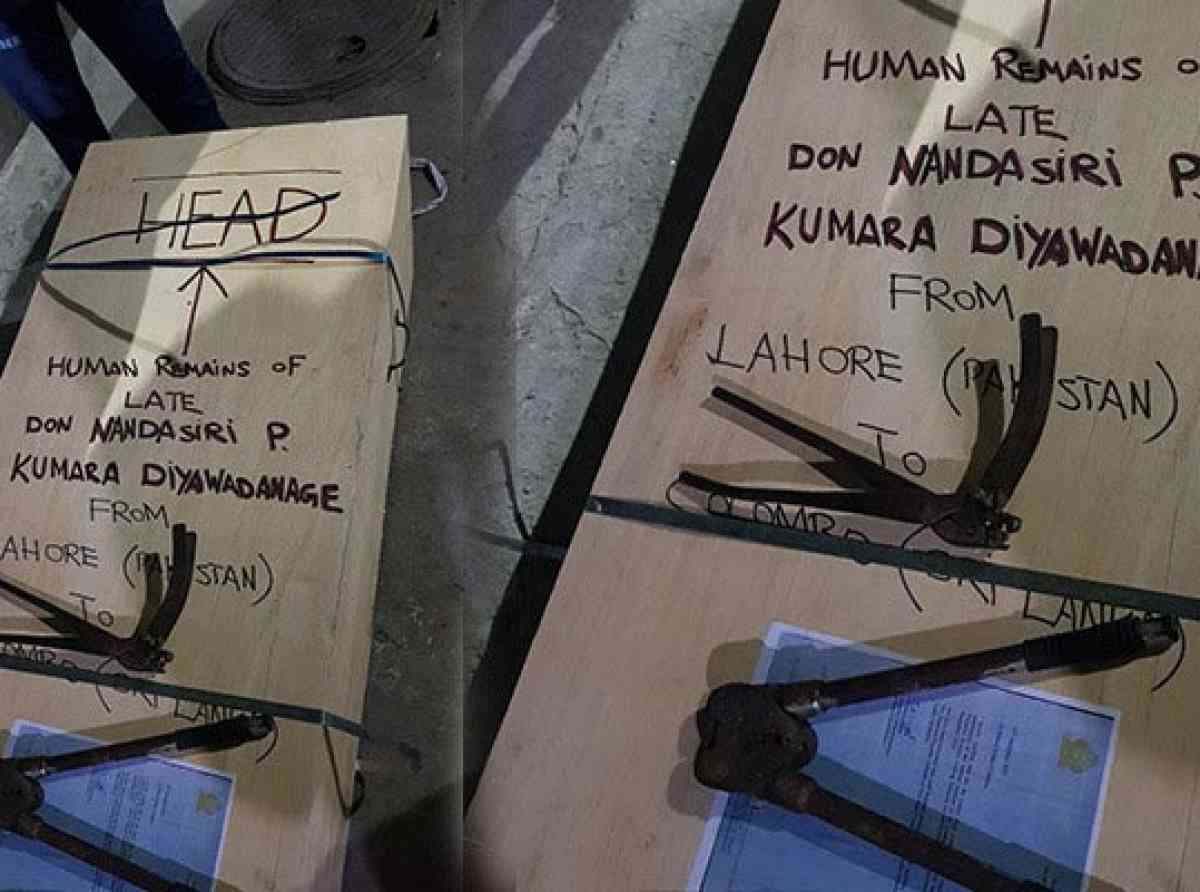 HEAD
HUMAN REMAINS OF
LATE
DON NANDASIRI P.
KUMARA DIYAWADANAGE
FROM
AHORE (PAKISTAN)
To
HUMAN REMAINS O
LATE
DON NANDASIRI P.
KUMARA DIYAWADANA
FROM
LAHORE (PAKISTAN)
To
COLOMBO (SRI LANK